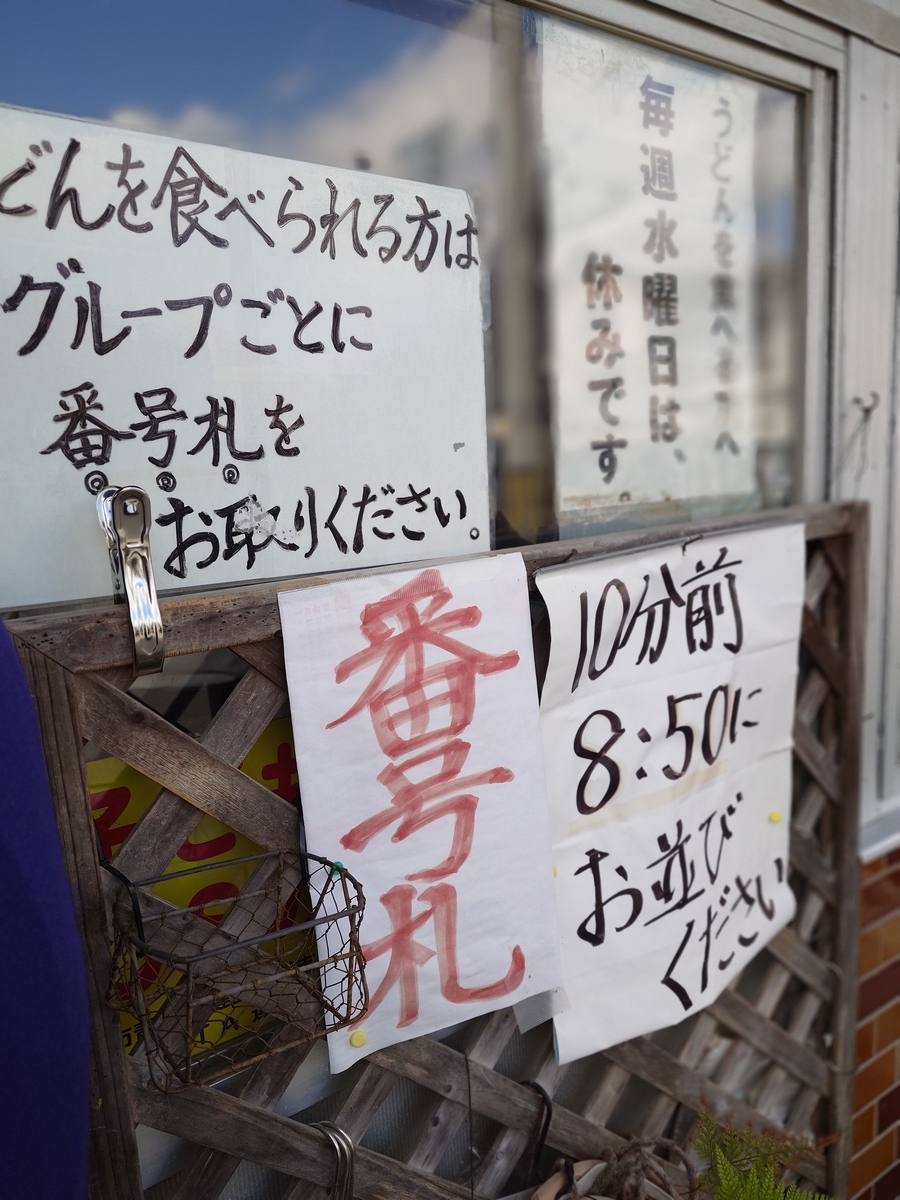 どんを食べられる方は
グループごとに
番号札を
お取りください。
うどんを食べる方へ
毎週水曜日は、
休みです。
番号札
10分前
8:50に
お並び
ください